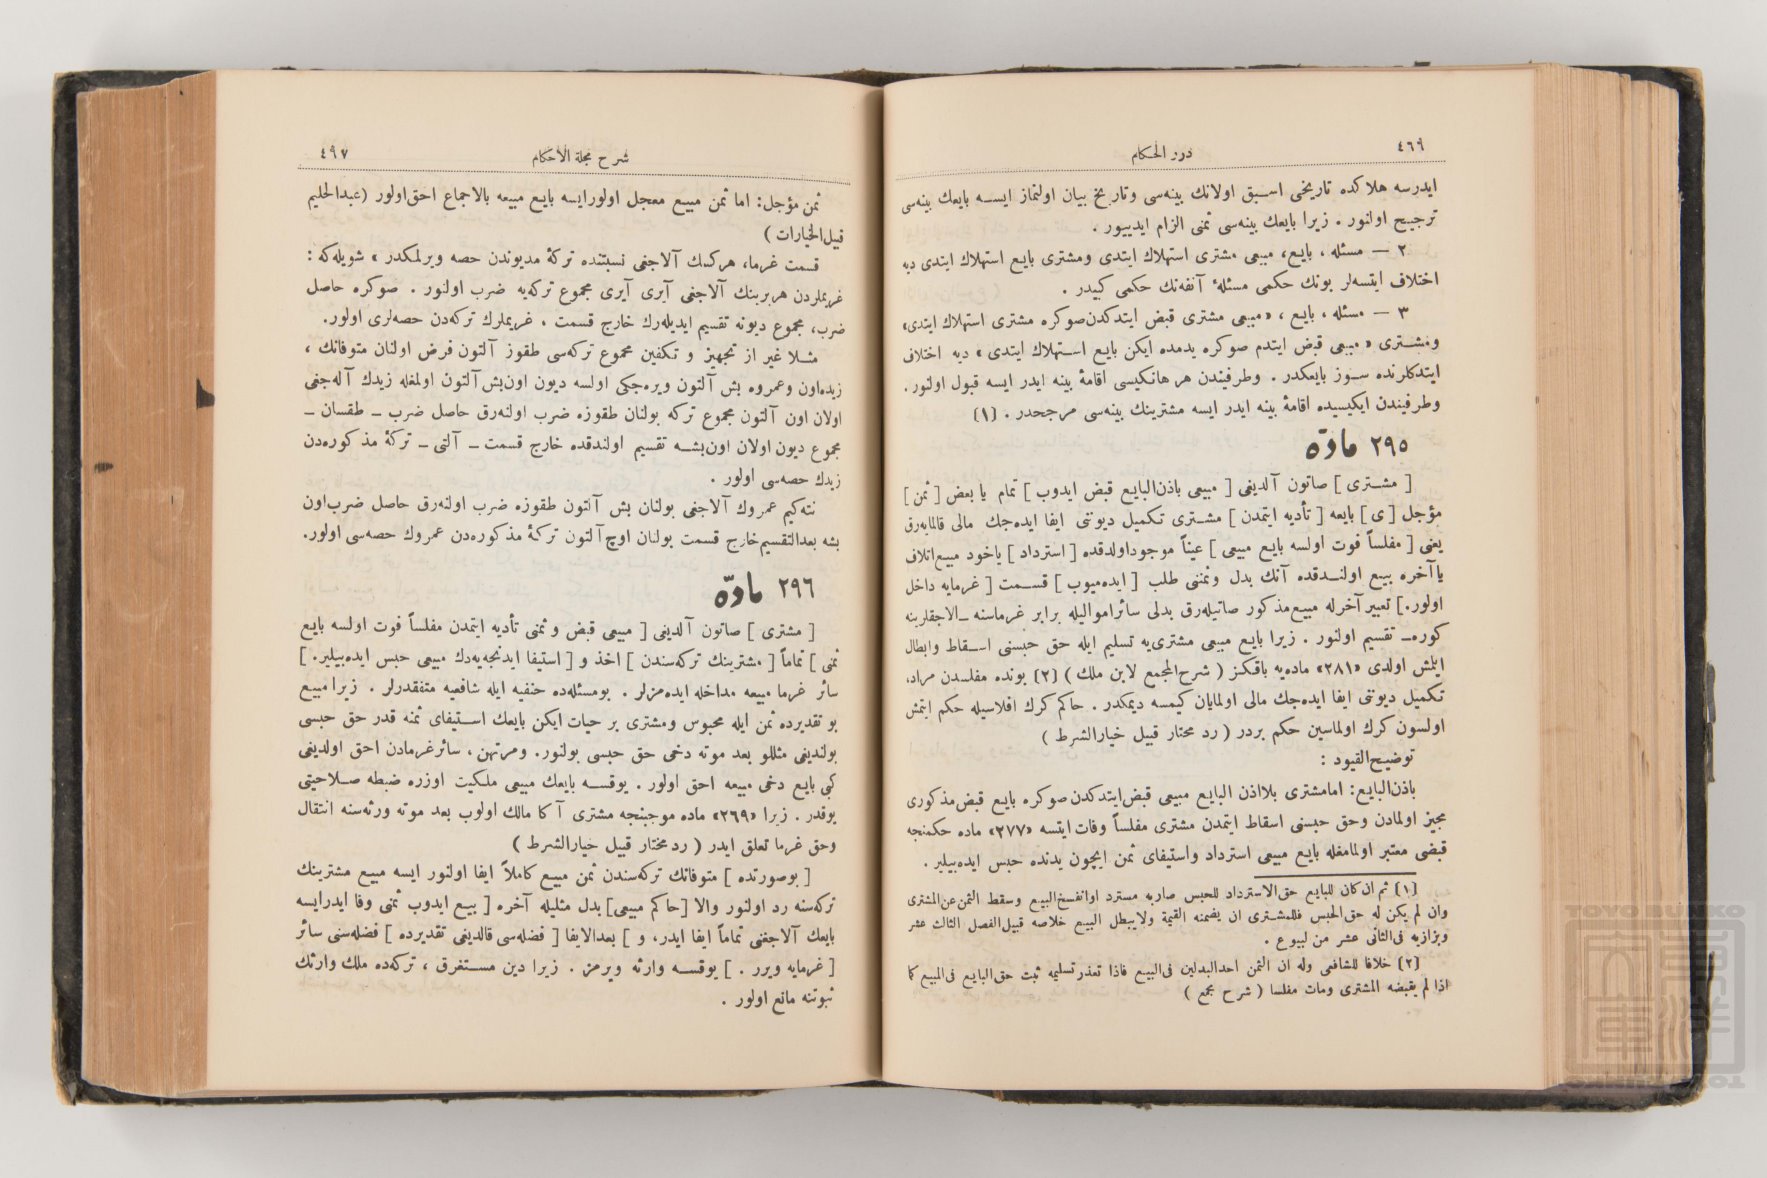 ٤٦٩
درر الحكام
ايدرسه هلاكده تاريخى اسبق اولانك بينه‌سى وتاريخ بيان اولنماز ايسه بايعك بينه‌سى
ترجيح اولنور . زيرا بايعك بينه‌سى ثمنى الزام ايدييور .
٢ — مسئله ، بايع، مبيعى مشترى استهلاك ايتدى ومشترى بايع استهلاك ايتدى ديه
اختلاف ايتسه‌لر بونك حكمى مسئلهٔ آنفه‌نك حكمى كبيدر .
٣ — مسئله ، بايع ، «مبيعى مشترى قبض ايتدكدن‌صوكره مشترى استهلاك ايتدى»
ومشترى « مبيعى قبض ايتدم صوكره يدمده ايكن بايع استهلاك ايتدى » ديه اختلاف
ايتدكلرنده سوز بايعكدر . وطرفيندن هر هانكيسى اقامهٔ بينه ايدر ايسه قبول اولنور .
وطرفيندن ايكيسيده اقامهٔ بينه ايدر ايسه مشترينك بينه‌سى مرجحدر . (١)
٢٩٥ مادّه
[ مشترى ] صاتون آلديغى [ مبيعى باذن‌البايع قبض ايدوب ] تمام يا بعض [ ثمن ]
مؤجل [ ى ] بايعه [ تأديه ايتمدن ] مشترى تكميل ديوننى ايفا ايده‌جك مالى قالمايه‌رق
يعنى [ مفلساً فوت اولسه بايع مبيعى ] عيناً موجوداولدقده [ استرداد ] ياخود مبيع‌اتلاف
ياآخره بيع اولندقده آنك بدل وثمننى طلب [ ايده‌ميوب ] قسمت [ غرمايه داخل
اولور.] تعبير آخرله مبيع‌مذكور صاتيله‌رق بدلى سائراموالیله برابر غرماسنه ـ‌الاجقلرينه
كوره‌ـ تقسيم اولنور . زيرا بايع مبيعى مشترى‌يه تسليم ايله حق حبسنى اسقاط وابطال
ايلمش اولدى «٢٨١» ماده‌يه باقكز ( شرح‌المجمع لابن ملك ) (٢) بونده مفلسدن مراد،
تكميل ديوننى ايفا ايده‌جك مالى اولمايان كيمسه ديمكدر . حاكم كرك افلاسيله حكم ايتمش
اولسون كرك اولماسين حكم بردر ( رد محتار قبيل خيارالشرط )
توضيح‌القيود :
باذن‌البايع: امامشترى بلااذن البايع مبيعى قبض‌ايتدكدن‌صوكره بايع قبض‌مذكورى
مجيز اولمادن وحق حبسنى اسقاط ايتمدن مشترى مفلساً وفات‌ايتسه «٢٧٧» ماده حكمنجه
قبضى معتبر اولمامغله بايع مبيعى استرداد واستيفاى ثمن ايچون يدنده حبس ايده‌بيلير .
(١) ثم ان كان للبايع حق‌الاسترداد للحبس صاربه مسترد اوانفسخ‌البيع وسقط الثمن‌عن‌المشترى
وان لم يكن له حق‌الحبس فللمشترى ان يضمنه القيمة ولايبطل البيع خلاصه قبيل‌الفصل الثالث عشر
وبزازيه فى‌الثانى عشر من لبيوع .
(٢) خلافا للشافعى وله ان الثمن احدالبدلين فى‌البيع فاذا تعذرتسليمه ثبت حق‌البايع فى‌المبيع كا
اذا لم يقبضه المشترى ومات مفلسا ( شرح مجمع )
٤٩٧
شرح مجلة الاحكام
ثمن مؤجل: اما ثمن مبيع معجل اولورايسه بايع مبيعه بالاجماع احق‌اولور (عبدالحليم
قبيل‌الخيارات )
قسمت غرما، هركسك آلاجغى نسبتنده تركهٔ مديوندن حصه ويرلمكدر » شويله‌كه :
غريملردن هربرينك آلاجغى آيرى آيرى مجموع تركه‌يه ضرب اولنور . صوكره حاصل
ضرب، مجموع ديونه تقسيم ايديله‌رك خارج قسمت ، غريملرك تركه‌دن حصه‌لرى اولور.
مثلا غير از تجهيز و تكفين مجموع تركه‌سى طقوز آلتون فرض اولنان متوفانك ،
زيده‌اون وعمروه بش آلتون ويره‌جكى اولسه ديون اون‌بش‌آلتون اولمغله زيدك آله‌جغى
اولان اون آلتون مجموع تركه بولنان طقوزه ضرب اولنه‌رق حاصل ضرب ـ طقسان ـ
مجموع ديون اولان اون‌بشه تقسيم اولندقده خارج قسمت ـ آلتى ـ تركهٔ مذكوره‌دن
زيدك حصه‌سى اولور .
نته‌كيم عمروك آلاجغى بولنان بش آلتون طقوزه ضرب اولنه‌رق حاصل ضرب‌اون
بشه بعدالتقسيم‌خارج قسمت بولنان اوچ‌آلتون تركهٔ مذكوره‌دن عمروك حصه‌سى اولور.
٢٩٦ مادّه
[ مشترى ] صاتون آلديغى [ مبيعى قبض و ثمنى تأديه ايتمدن مفلساً فوت اولسه بايع
ثمنى ] تماماً [ مشترينك تركه‌سندن ] اخذ و [ استيفا ايدنجه‌يه‌دك مبيعى حبس ايده‌بيلير. ]
سائر غرما مبيعه مداخله ايده‌مزلر . بومسئله‌ده حنفيه ايله شافعيه متفقدرلر . زيرا مبيع
بو تقديرده ثمن ايله محبوس ومشترى بر حيات ايكن بايعك استيفاى ثمنه قدر حق حبسى
بولنديغى مثللو بعد موته دخى حق حبسى بولنور. ومرتهن ، سائرغرمادن احق اولديغى
كبى بايع دخى مبيعه احق اولور . يوقسه بايعك مبيعى ملكيت اوزره ضبطه صلاحيتى
يوقدر . زيرا «٢٦٩» ماده موجبنجه مشترى آكا مالك اولوب بعد موته ورثه‌سنه انتقال
وحق غرما تعلق ايدر ( رد محتار قبيل خيارالشرط )
[ بوصورتده ] متوفانك تركه‌سندن ثمن مبيع كاملاً ايفا اولنور ايسه مبيع مشترينك
تركه‌سنه رد اولنور والا [حاكم مبيعى] بدل مثليله آخره [ بيع ايدوب ثمنى وفا ايدرايسه
بايعك آلاجغنى تماماً ايفا ايدر، و ] بعدالايفا [ فضله‌سى قالديغى تقديرده ] فضله‌سنى سائر
[ غرمايه ويرر . ] يوقسه وارثه ويرمز . زيرا دين مستغرق ، تركه‌ده ملك وارثك
ثبوتنه مانع اولور .
TOYO BUNKO